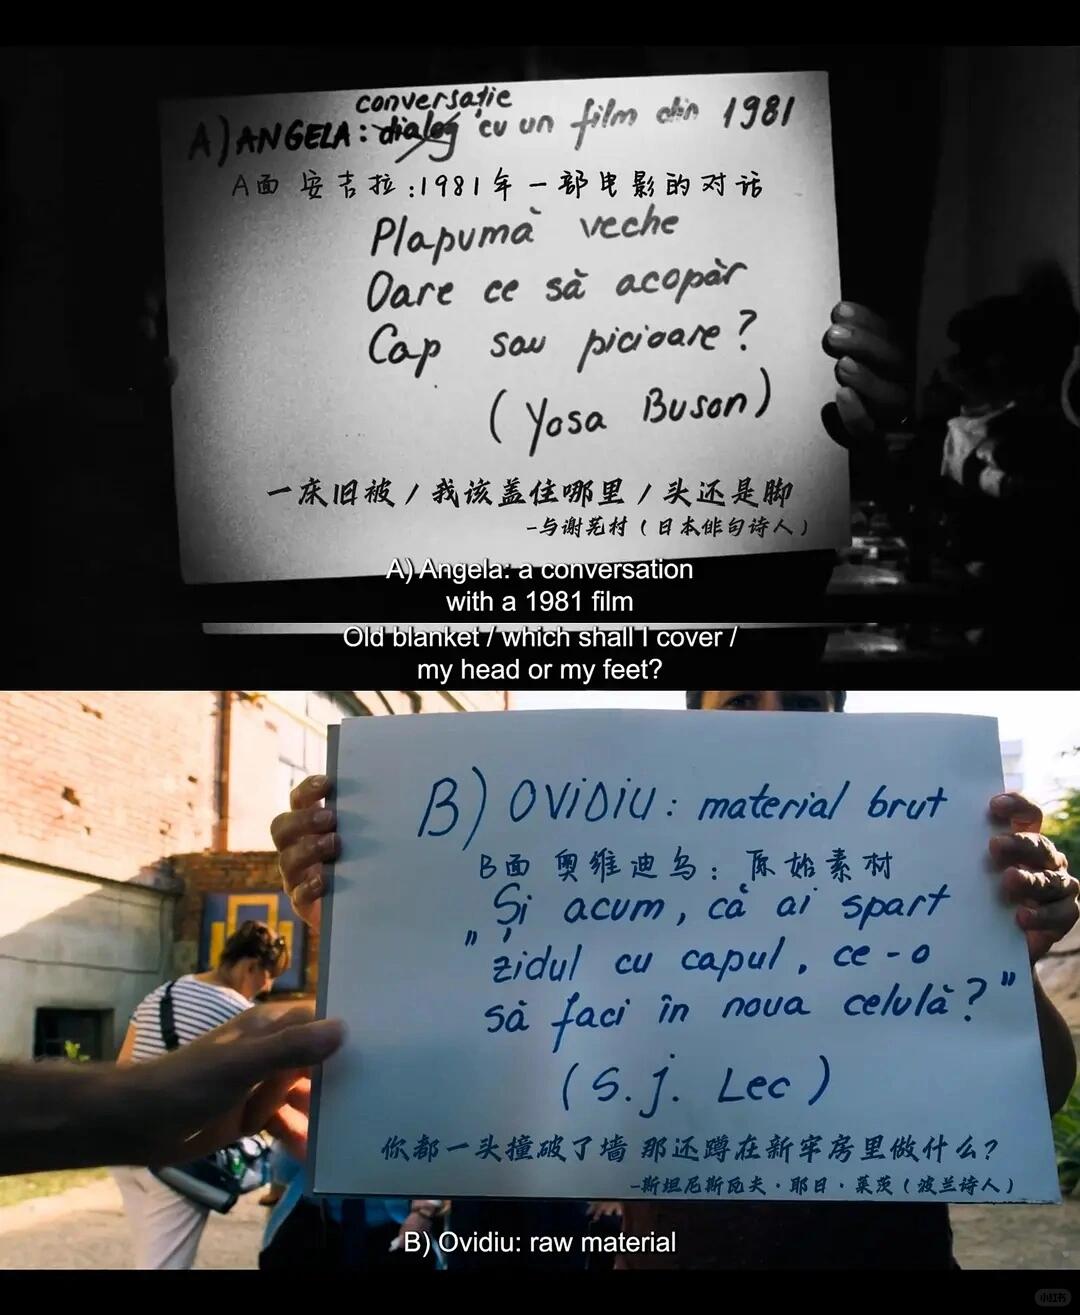 conversație
A) ANGELA: dialog cu un film din 1981
A面 安吉拉:1981年一部电影的对话
Plapumă veche
Oare ce să acopăr
Cap sau picioare?
(Yosa Buson)
一床旧被 / 我该盖住哪里 / 头还是脚
-与谢芜村(日本俳句诗人)
A) Angela: a conversation
with a 1981 film
Old blanket / which shall I cover /
my head or my feet?
B) OViDiU: material brut
B面 奥维迪乌:原始素材
Și acum, că ai spart
"zidul cu capul, ce-o
să faci în noua celulă?"
(S.J. Lec)
你都一头撞破了墙 那还蹲在新牢房里做什么?
-斯坦尼斯瓦夫·耶日·莱茨(波兰诗人)
B) Ovidiu: raw material
小红书